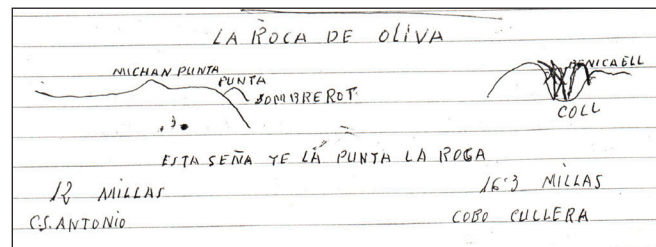 LA ROCA DE OLIVA
MICHAN PUNTA
PUNTA
SOMBREROT
BENICAELL
COLL
ESTA SEÑA TE LA PUNTA LA ROCA
12 MILLAS
16'3 MILLAS
C.S. ANTONIO
COBO CULLERA